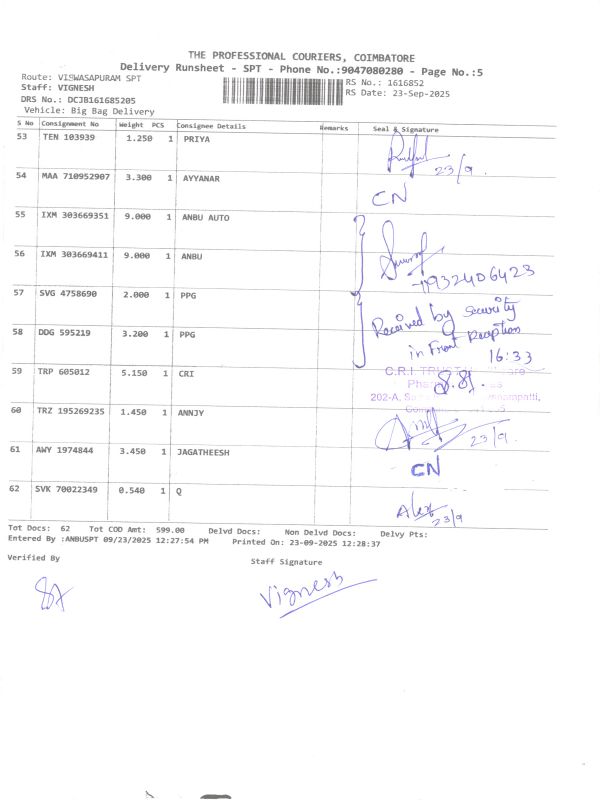 THE PROFESSIONAL COURIERS, COIMBATORE
Delivery Runsheet - SPT - Phone No.:9047080280 - Page No.:5
Route: VISWASAPURAM SPT
RS No.: 1616852
Staff: VIGNESH
RS Date: 23-Sep-2025
DRS No.: DCJB161685205
Vehicle: Big Bag Delivery
S No Consignment No Weight PCS Consignee Details Remarks Seal & Signature
53 TEN 103939 1.250 1 PRIYA
23/9.
54 MAA 710952907 3.300 1 AYYANAR
CN
55 IXM 303669351 9.000 1 ANBU AUTO
56 IXM 303669411 9.000 1 ANBU
9932406423
57 SVG 4758690 2.000 1 PPG
Received by Security
in Front Reception
58 DDG 595219 3.200 1 PPG
16:33
59 TRP 605012 5.150 1 CRI
C.R.I. TRUST
202-A,
60 TRZ 195269235 1.450 1 ANNJY
23/9.
61 AWY 1974844 3.450 1 JAGATHEESH
CN
62 SVK 70022349 0.540 1 Q
Alex
23/9
Tot Docs: 62 Tot COD Amt: 599.00 Delvd Docs: Non Delvd Docs: Delvy Pts:
Entered By :ANBUSPT 09/23/2025 12:27:54 PM Printed On: 23-09-2025 12:28:37
Verified By
Staff Signature
Vignesh